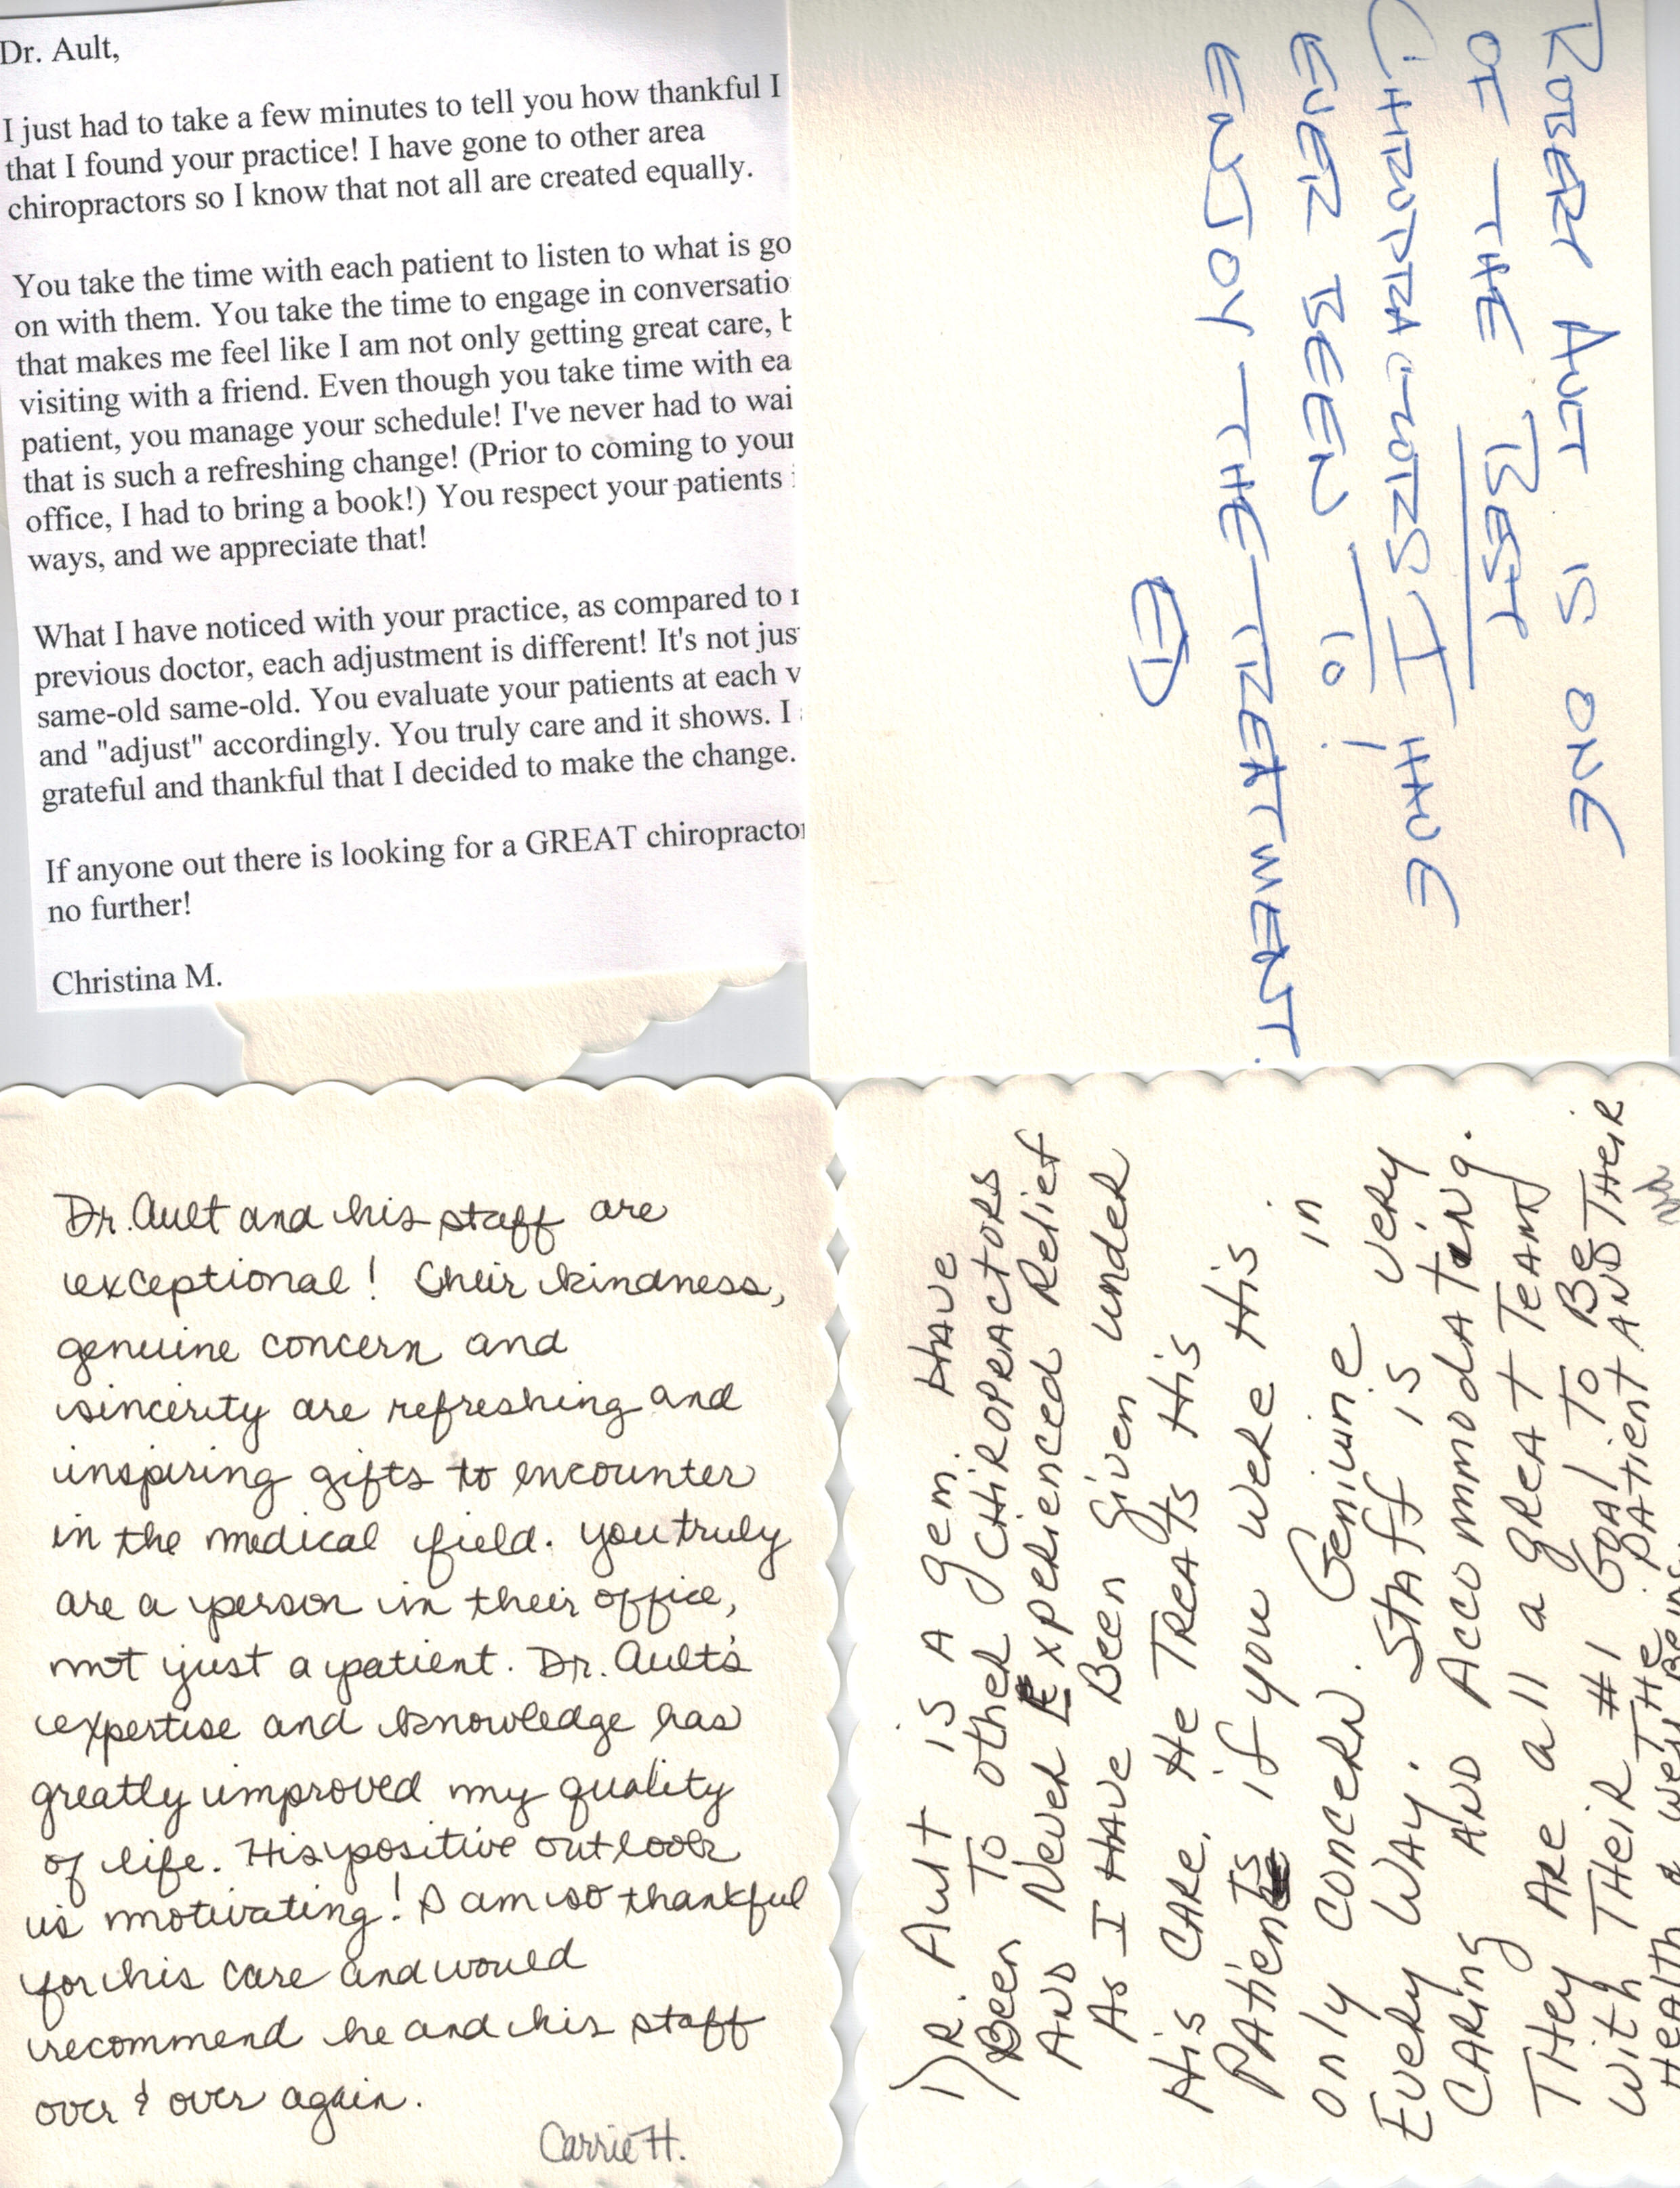 Dr. Ault,
I just had to take a few minutes to tell you how thankful I
that I found your practice! I have gone to other area
chiropractors so I know that not all are created equally.
You take the time with each patient to listen to what is go
on with them. You take the time to engage in conversatio
that makes me feel like I am not only getting great care, b
visiting with a friend. Even though you take time with ea
patient, you manage your schedule! I've never had to wai
that is such a refreshing change! (Prior to coming to your
office, I had to bring a book!) You respect your patients i
ways, and we appreciate that!
What I have noticed with your practice, as compared to r
previous doctor, each adjustment is different! It's not jus
same-old same-old. You evaluate your patients at each v
and "adjust" accordingly. You truly care and it shows. I
grateful and thankful that I decided to make the change.
If anyone out there is looking for a GREAT chiropractor
no further!
Christina M.
ROBERT AULT IS ONE
OF THE BEST
CHIROPRACTORS I HAVE
EVER BEEN TO!
ENJOY THE TREATMENT.
Dr. Ault and his staff are
exceptional! Their kindness,
genuine concern and
sincerity are refreshing and
inspiring gifts to encounter
in the medical field. You truly
are a person in their office,
not just a patient. Dr. Ault's
expertise and knowledge has
greatly improved my quality
of life. His positive outlook
is motivating! I am so thankful
for his care and would
recommend he and his staff
over & over again.
Carrie H.
DR. Ault is A gem. HAVE
Been To other CHIROPRACTORS
AND Never Experienced Relief
As I HAVE Been given under
His CARE. He TREATS His
PATients if you were His
only concern. Genuine in
Every WAY. STAff is very
CARing AND AccommodATing.
THey ARE all a gREAT TEAM
with THEIR #1 GOAl TO BE THEIR
HEALTH & Well Being THE PATient AND